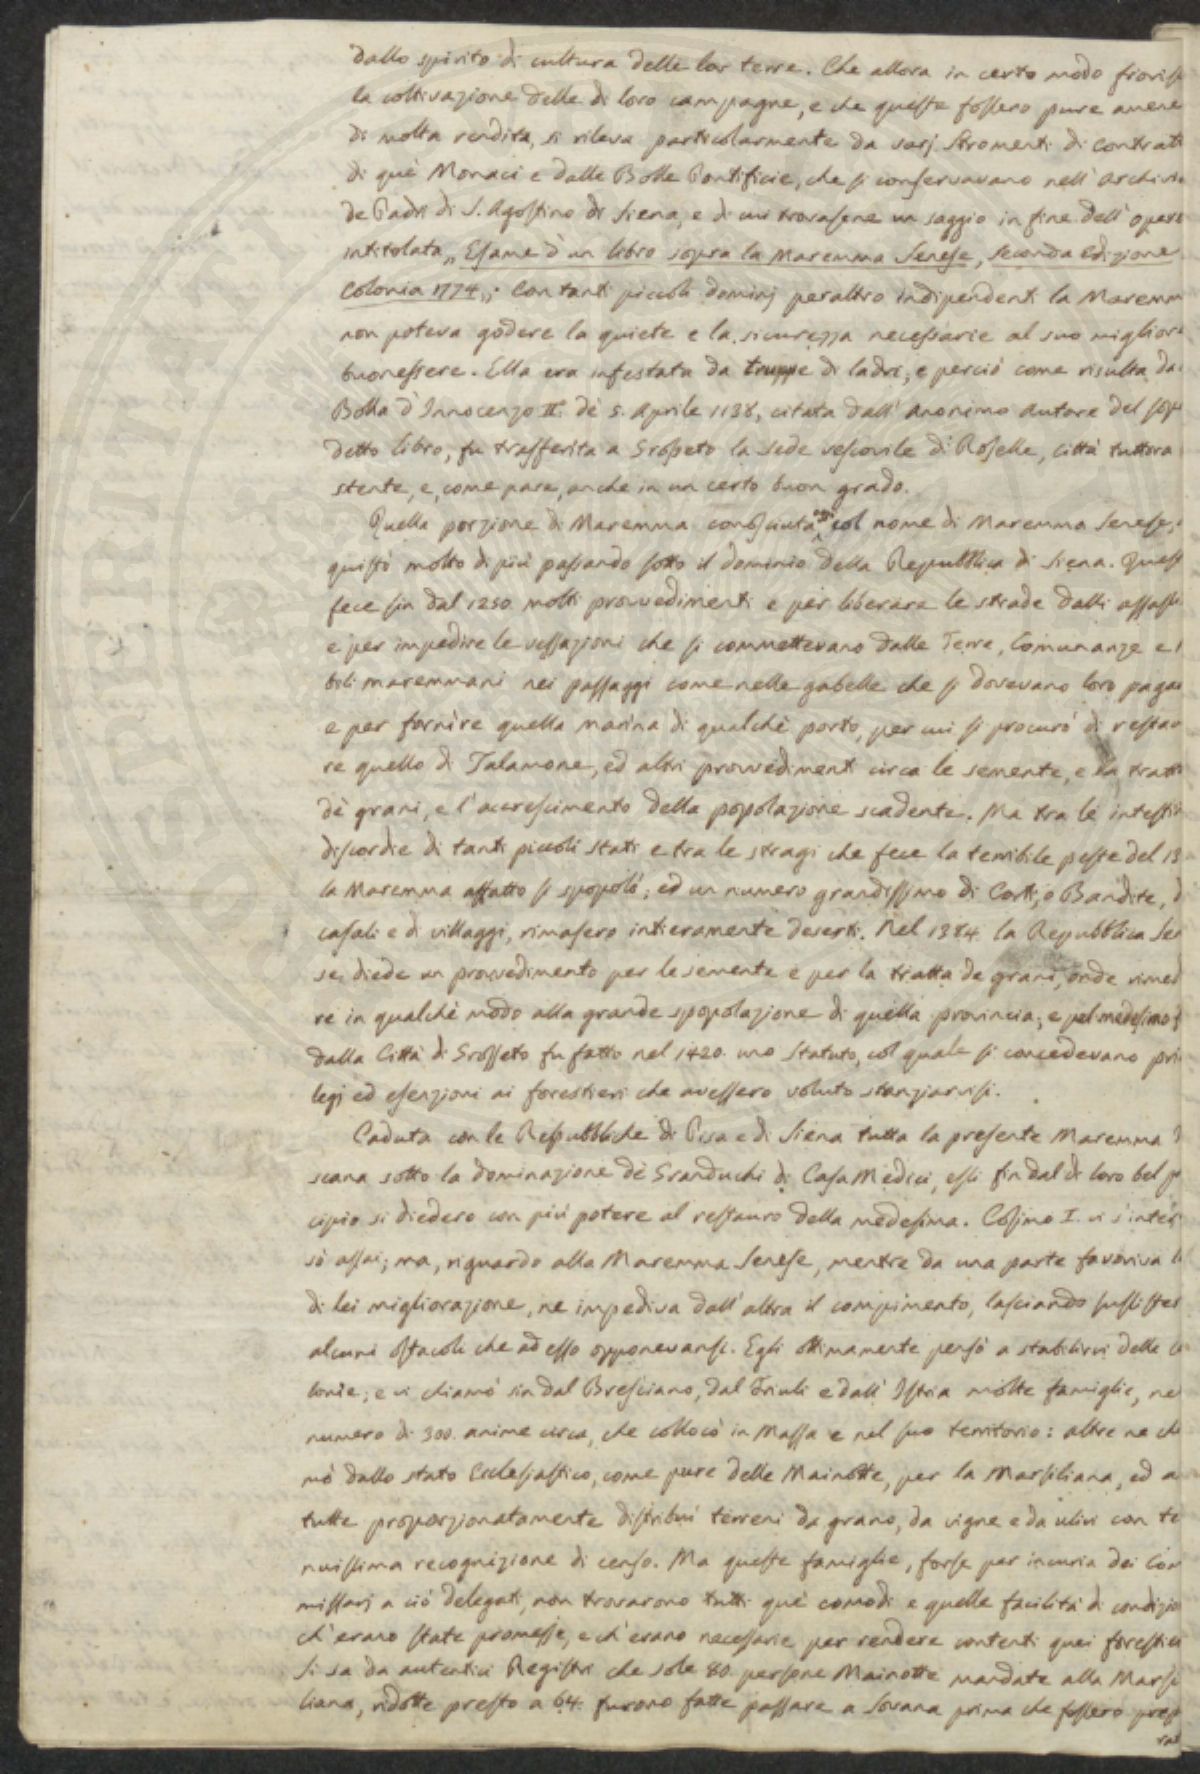 dallo spirito di cultura delle lor terre. Che allora in certo modo fioriss
la coltivazione delle di loro campagne, e che queste fossero pure amene
di molta rendita, si rileva particolarmente da varj Stromenti di contratt
di què Monaci e dalle Bolle Pontificie, che si conservavano nell' Archivi
de Padri di S. Agostino di Siena, e di cui trovasene un saggio in fine dell' opera
intitolata „ Esame d' un libro sopra la Maremma Senese, seconda Edizione
Colonia 1774 „. Con tanti piccoli dominj peraltro indipendenti la Maremm
non poteva godere la quiete e la sicurezza necessarie al suo miglior
buonessere. Ella era infestata da truppe di ladri, e perciò come risulta da
Bolla d' Innocenzo II. dè 5. Aprile 1138, citata dall' Anonimo Autore del sop
detto libro, fu trasferita a Grosseto la sede vescovile di Roselle, città tuttora
stente, e, come pare, anche in un certo buon grado.
Quella porzione di Maremma conosciuta oggi col nome di Maremma Senese,
quistò molto di più passando sotto il dominio della Repubblica di Siena. Quest
fece fin dal 1250 molti provvedimenti e per liberare le strade dalli assass
e per impedire le vessazioni che si commettevano dalle Terre, Comunanze e
bili maremmani nei passaggi come nelle gabelle che si dovevano loro paga
e per fornire quella marina di qualchè porto, per cui si procurò di restau
re quello di Talamone, ed altri provvedimenti circa le semente, e la tratt
dè grani, e l' accrescimento della popolazione scadente. Ma tra le intesti
discordie di tanti piccoli stati e tra le stragi che fece la terribile peste del 13
la Maremma affatto si spopolò; ed un numero grandissimo di Corti, o Bandite, d
casali e di villaggi, rimasero intieramente deserti. Nel 1384 la Repubblica Sen
se, diede un provvedimento per le semente e per la tratta de grani, onde rimed
re in qualchè modo alla grande spopolazione di quella provincia; e pel medesimo f
dalla Città di Grosseto fu fatto nel 1420. uno Statuto, col quale si concedevano pri
legj ed esenzioni ai forestieri che avessero voluto stanziarvisi.
Caduta con le Repubbliche di Pisa e di Siena tutta la presente Maremma
scana sotto la dominazione dè Granduchi di Casa Medici, essi fin dal di loro bel p
cipio si diedero con più potere al restauro della medesima. Cosimo I. vi s' inter
sò assai; ma, riguardo alla Maremma Senese, mentre da una parte favoriva l
di lei migliorazione, ne impediva dall' altra il compimento, lasciando sussister
alcuni ostacoli che ad esso opponevansi. Egli ottimamente pensò a stabilirvi delle Co
lonie; e vi chiamò sin dal Bresciano, dal Friuli e dall' Istria molte famiglie, ne
numero di 300. anime circa, che collocò in Massa e nel suo territorio: altre ne chi
mò dallo stato Ecclesiastico, come pure delle Mainotte, per la Marsiliana, ed a
tutte proporzionatamente distribuì terreni da grano, da vigne e da ulivi con te
nuissima recognizione di censo. Ma queste famiglie, forse per incuria dei Com
missarj a ciò delegati, non trovarono tutti què comodi e quelle facilità di condizio
ch' erano state promesse, e ch' erano necessarie per rendere contenti quei forestieri
Si sa da autentici Registri che sole 80. persone Mainotte mandate alla Marsi
liana, ridotte presto a 64. furono fatte passare a Sovana prima che fossero prep
rat